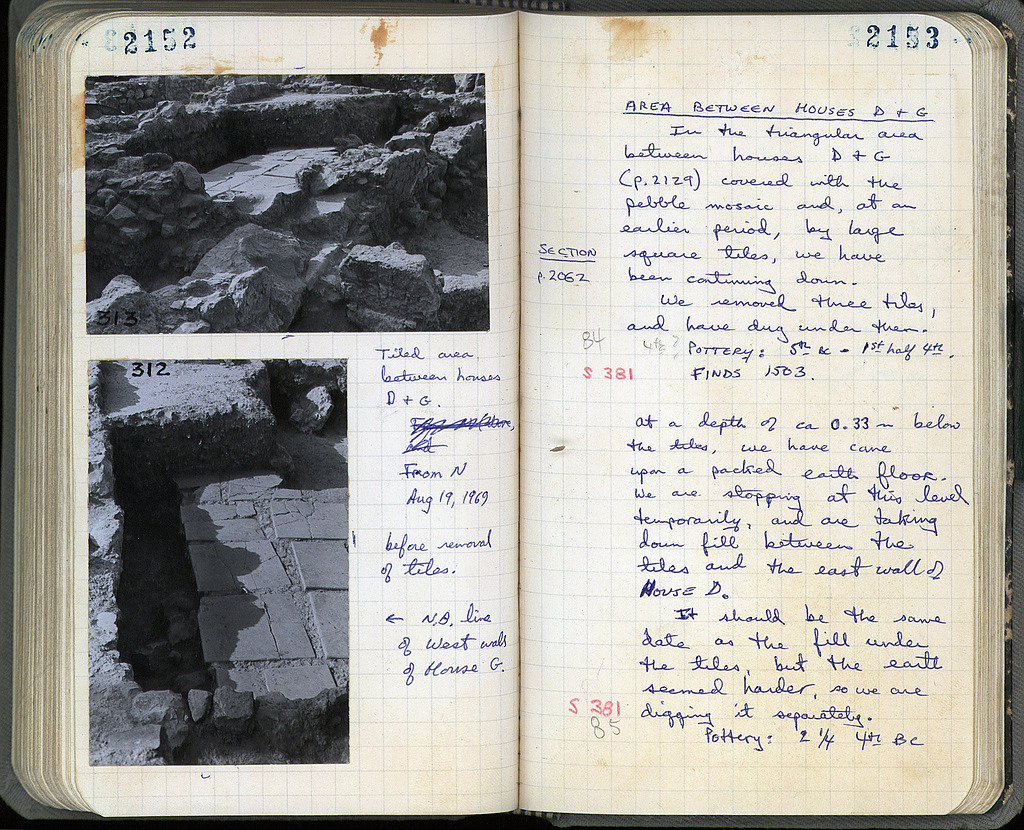 2152
313
312
Tiled area,
between houses
D + G.
From N
Aug 19, 1969
before removal
of tiles.
← N.B. line
of West wall
of House G.
2153
AREA BETWEEN HOUSES D + G
In the triangular area
between houses D + G
(p.2129) covered with the
pebble mosaic and, at an
earlier period, by large
SECTION
square tiles, we have
p.2062
been continuing down.
We removed three tiles,
and have dug under them.
84
4th? POTTERY: 5th BC - 1st half 4th.
S 381
FINDS 1503.
at a depth of ca 0.33 m below
the tiles, we have come
upon a packed earth floor.
We are stopping at this level
temporarily, and are taking
down fill between the
tiles and the east wall of
HOUSE D.
It should be the same
date as the fill under
the tiles, but the earth
seemed harder, so we are
S 381
digging it separately.
85
Pottery: 2 1/4 4th BC